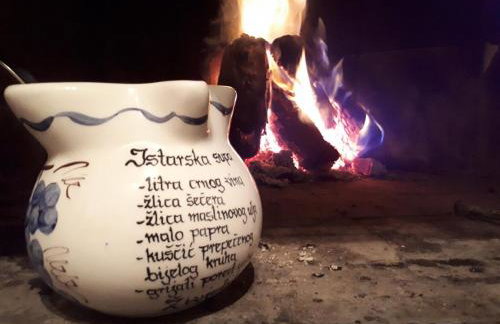 Istarska supa
-litra crnog vina
-žlica šećera
-žlica maslinovog ulja
-malo papra
-kuščić prepečenog
bijelog kruha
-grijati pored